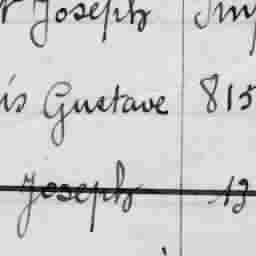 Joseph
is Gustave 815
Joseph 13